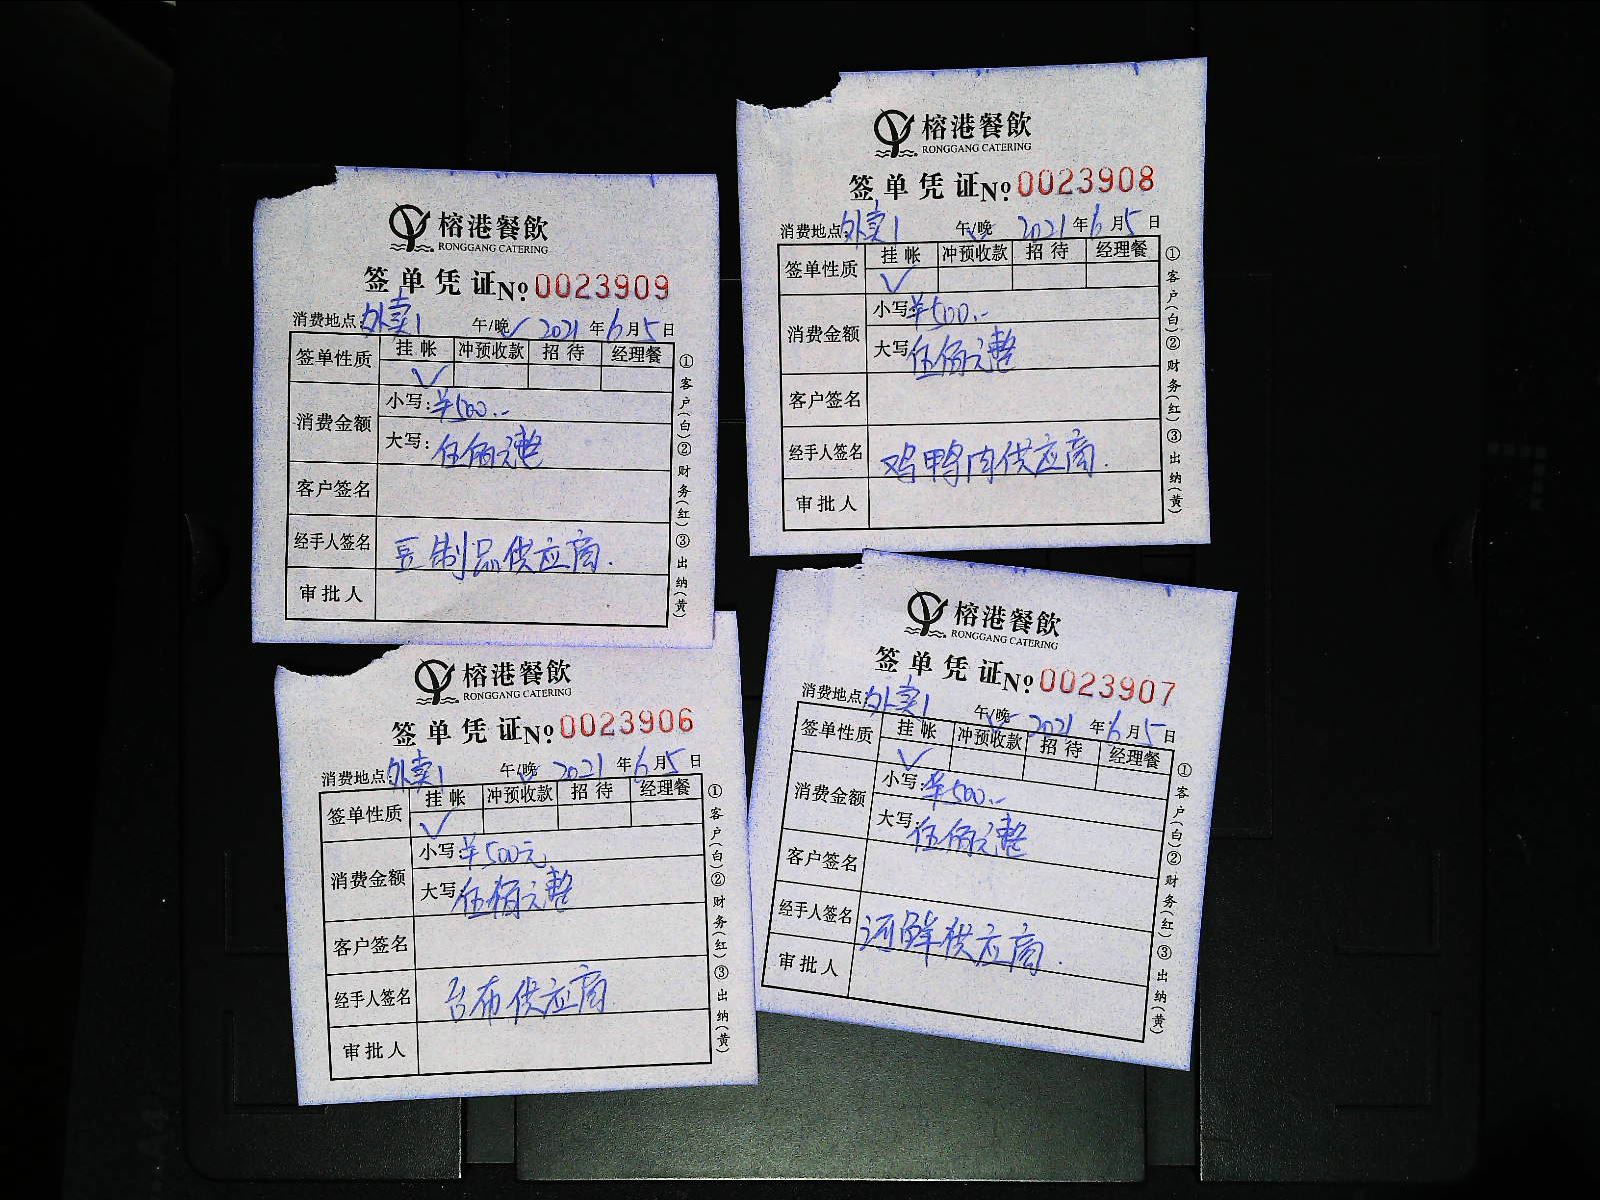 榕港餐飲
RONGGANG CATERING
签单凭证 No 0023909
消费地点:外卖1 午/晚✓ 2021年6月5日
签单性质 挂帐 冲预收款 招待 经理餐
✓
消费金额 小写:¥500.-
大写:伍佰元整
客户签名
经手人签名 豆制品供应商.
审批人
①客户(白)②财务(红)③出纳(黄)
榕港餐飲
RONGGANG CATERING
签单凭证 No 0023908
消费地点:外卖1 午/晚✓ 2021年6月5日
签单性质 挂帐 冲预收款 招待 经理餐
✓
消费金额 小写:¥500.-
大写:伍佰元整
客户签名
经手人签名 鸡鸭肉供应商.
审批人
①客户(白)②财务(红)③出纳(黄)
榕港餐飲
RONGGANG CATERING
签单凭证 No 0023906
消费地点:外卖1 午/晚✓ 2021年6月5日
签单性质 挂帐 冲预收款 招待 经理餐
✓
消费金额 小写:¥500元
大写:伍佰元整
客户签名
经手人签名 台布供应商
审批人
①客户(白)②财务(红)③出纳(黄)
榕港餐飲
RONGGANG CATERING
签单凭证 No 0023907
消费地点:外卖1 午/晚✓ 2021年6月5日
签单性质 挂帐 冲预收款 招待 经理餐
✓
消费金额 小写:¥500.-
大写:伍佰元整
客户签名
经手人签名 河鲜供应商.
审批人
①客户(白)②财务(红)③出纳(黄)